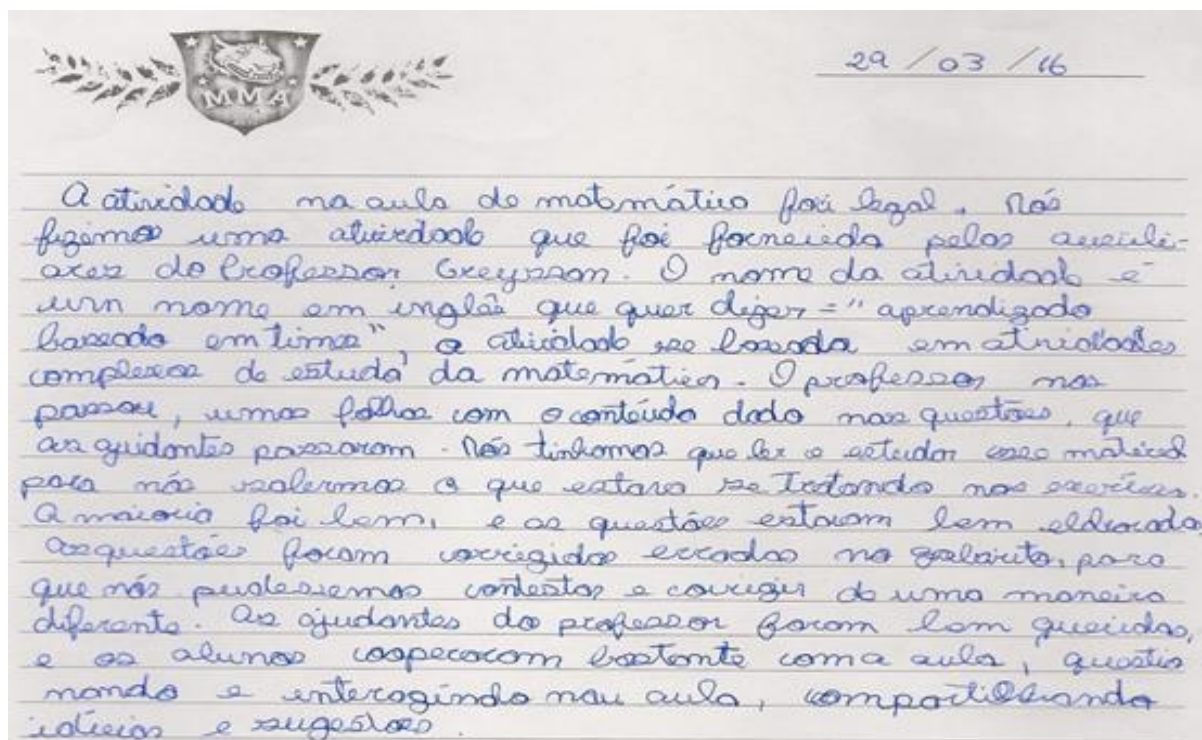 MMA
29/03/16
A atividade na aula de matemática foi legal. Nós
fizemos uma atividade que foi fornecida pelos auxili-
ares do Professor Greysson. O nome da atividade é
um nome em inglês que quer dizer = "aprendizado
baseado em times" a atividade se baseada em atividades
complexas de estudo da matemática. O professor nos
passou, umas folhas com o conteúdo dado nas questões, que
as ajudantes passaram. Nós tinhamos que ler e estudar esse material
para nós sabermos o que estava se tratando nos exercícios.
A maioria foi bem, e as questões estavam bem
As questões foram corrigidas erradas no gabarito, para
que nós pudessemos contestar e corrigir de uma maneira
diferente. As ajudantes do professor foram bem queridas,
e os alunos cooperaram bastante com a aula, questio
nando e interagindo nau aula, compartilhando
idéias e sugestões.